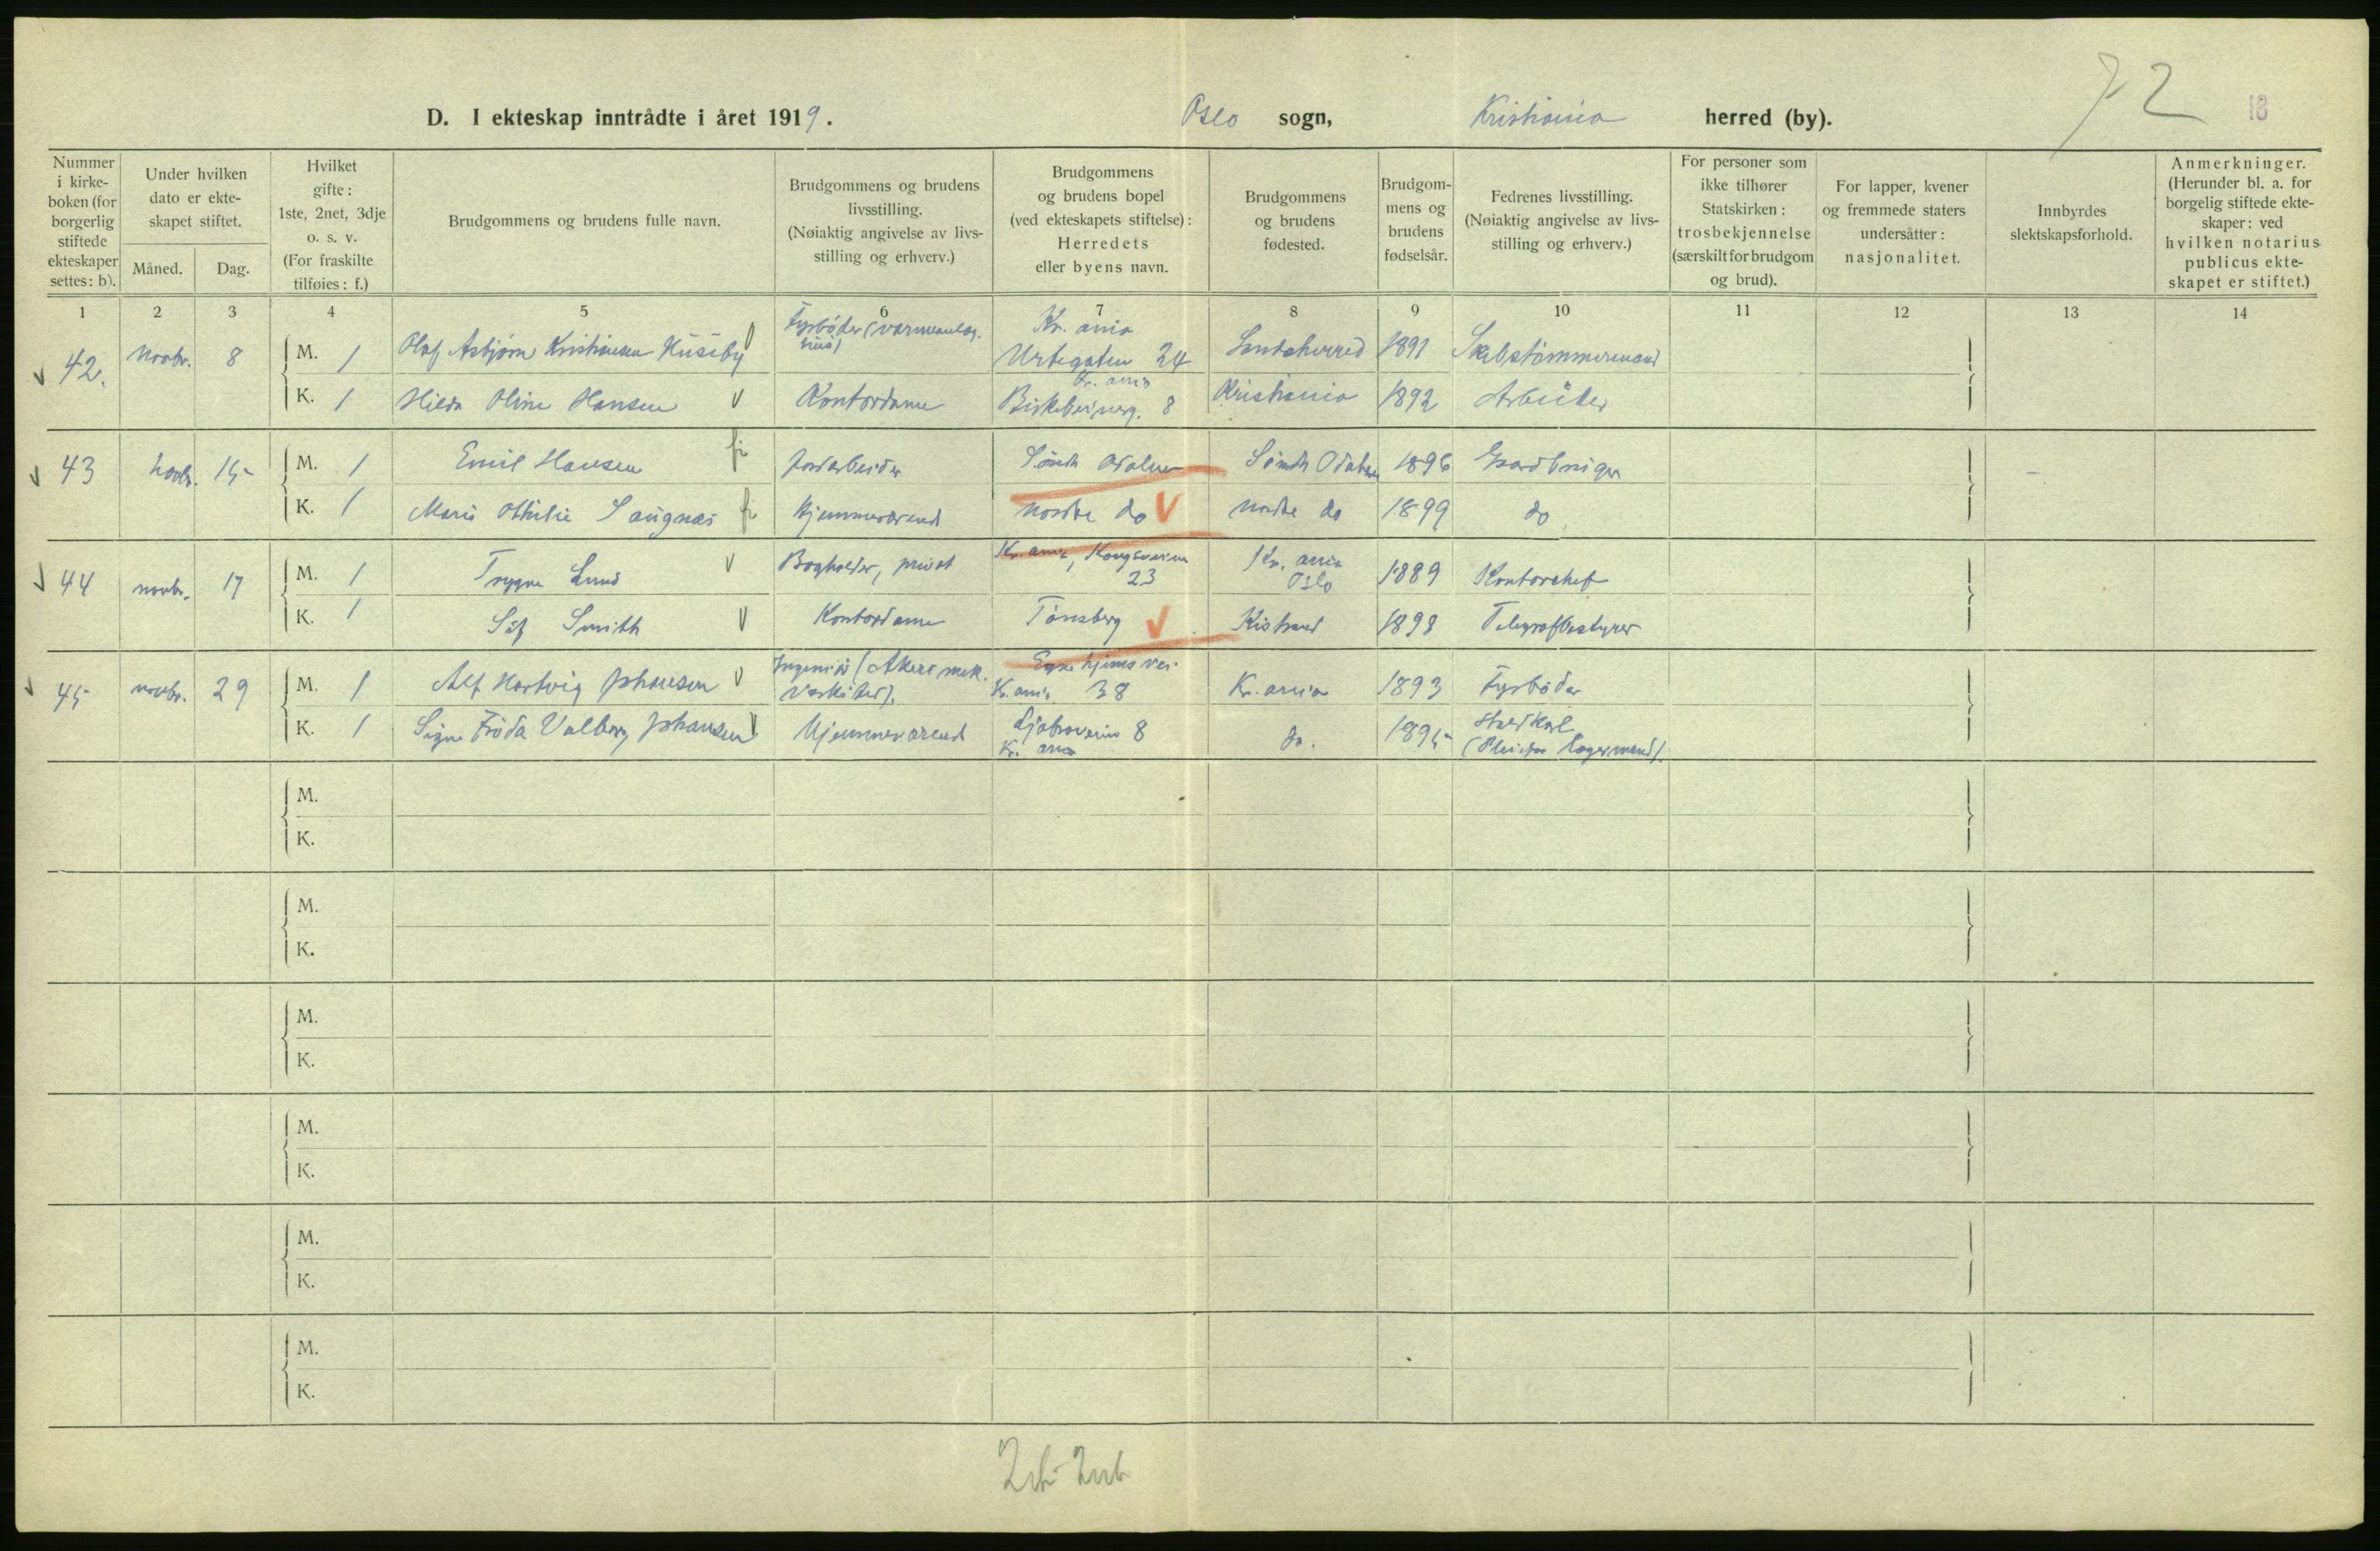 72
18
D. I ekteskap inntrådte i året 1919. Oslo sogn, Kristiania herred (by).
Nummer i kirkeboken (for borgerlig stiftede ekteskaper settes: b).
Under hvilken dato er ekteskapet stiftet.
Måned. Dag.
Hvilket gifte: 1ste, 2net, 3dje o. s. v. (For fraskilte tilføies: f.)
Brudgommens og brudens fulle navn.
Brudgommens og brudens livsstilling. (Nøiaktig angivelse av livsstilling og erhverv.)
Brudgommens og brudens bopel (ved ekteskapets stiftelse): Herredets eller byens navn.
Brudgommens og brudens fødested.
Brudgommens og brudens fødselsår.
Fedrenes livsstilling. (Nøiaktig angivelse av livsstilling og erhverv.)
For personer som ikke tilhører Statskirken: trosbekjennelse (særskilt for brudgom og brud).
For lapper, kvener og fremmede staters undersåtter: nasjonalitet.
Innbyrdes slektskapsforhold.
Anmerkninger. (Herunder bl. a. for borgelig stiftede ekteskaper: ved hvilken notarius publicus ekteskapet er stiftet.)
1 2 3 4 5 6 7 8 9 10 11 12 13 14
42. Novbr. 8 M. 1 Olaf Asbjørn Kristiansen Huseby Fyrbøder Kr. ania Urtegaten 24 1891 Skibstømmermand
K. 1 Hilda Oline Hansen Kontordame Kr. ania Birkebeinerg. 8 Kristiania 1892 Arbeider
43 Novbr. 15 M. 1 Emil Hansen Jordarbeider Søndre Odalen Søndre Odalen 1896 Gaardbruger
K. 1 Marie Othilie Saugnæs Hjemmeværende Nordre do Nordre do 1899 do
44 novbr. 17 M. 1 Trygve Lund Bogholder, privat Kr. ania, Kongsveien 23 Kr. ania Oslo 1889 Kontorchef
K. 1 Sif Smith Kontordame Tønsberg Kistrand 1898 Telegrafbestyrer
45 novbr. 29 M. 1 Alf Hartvig Johansen Ingeniør (Akers mek. Værksted). Egne hjems vei Kr. ania 38 Kr. ania 1893 Fyrbøder
K. 1 Signe Frøda Valborg Johansen Hjemmeværende Ljabroveien 8 Kr. ania do. 1895 Staldkarl
M.
K.
M.
K.
M.
K.
M.
K.
M.
K.
M.
K.